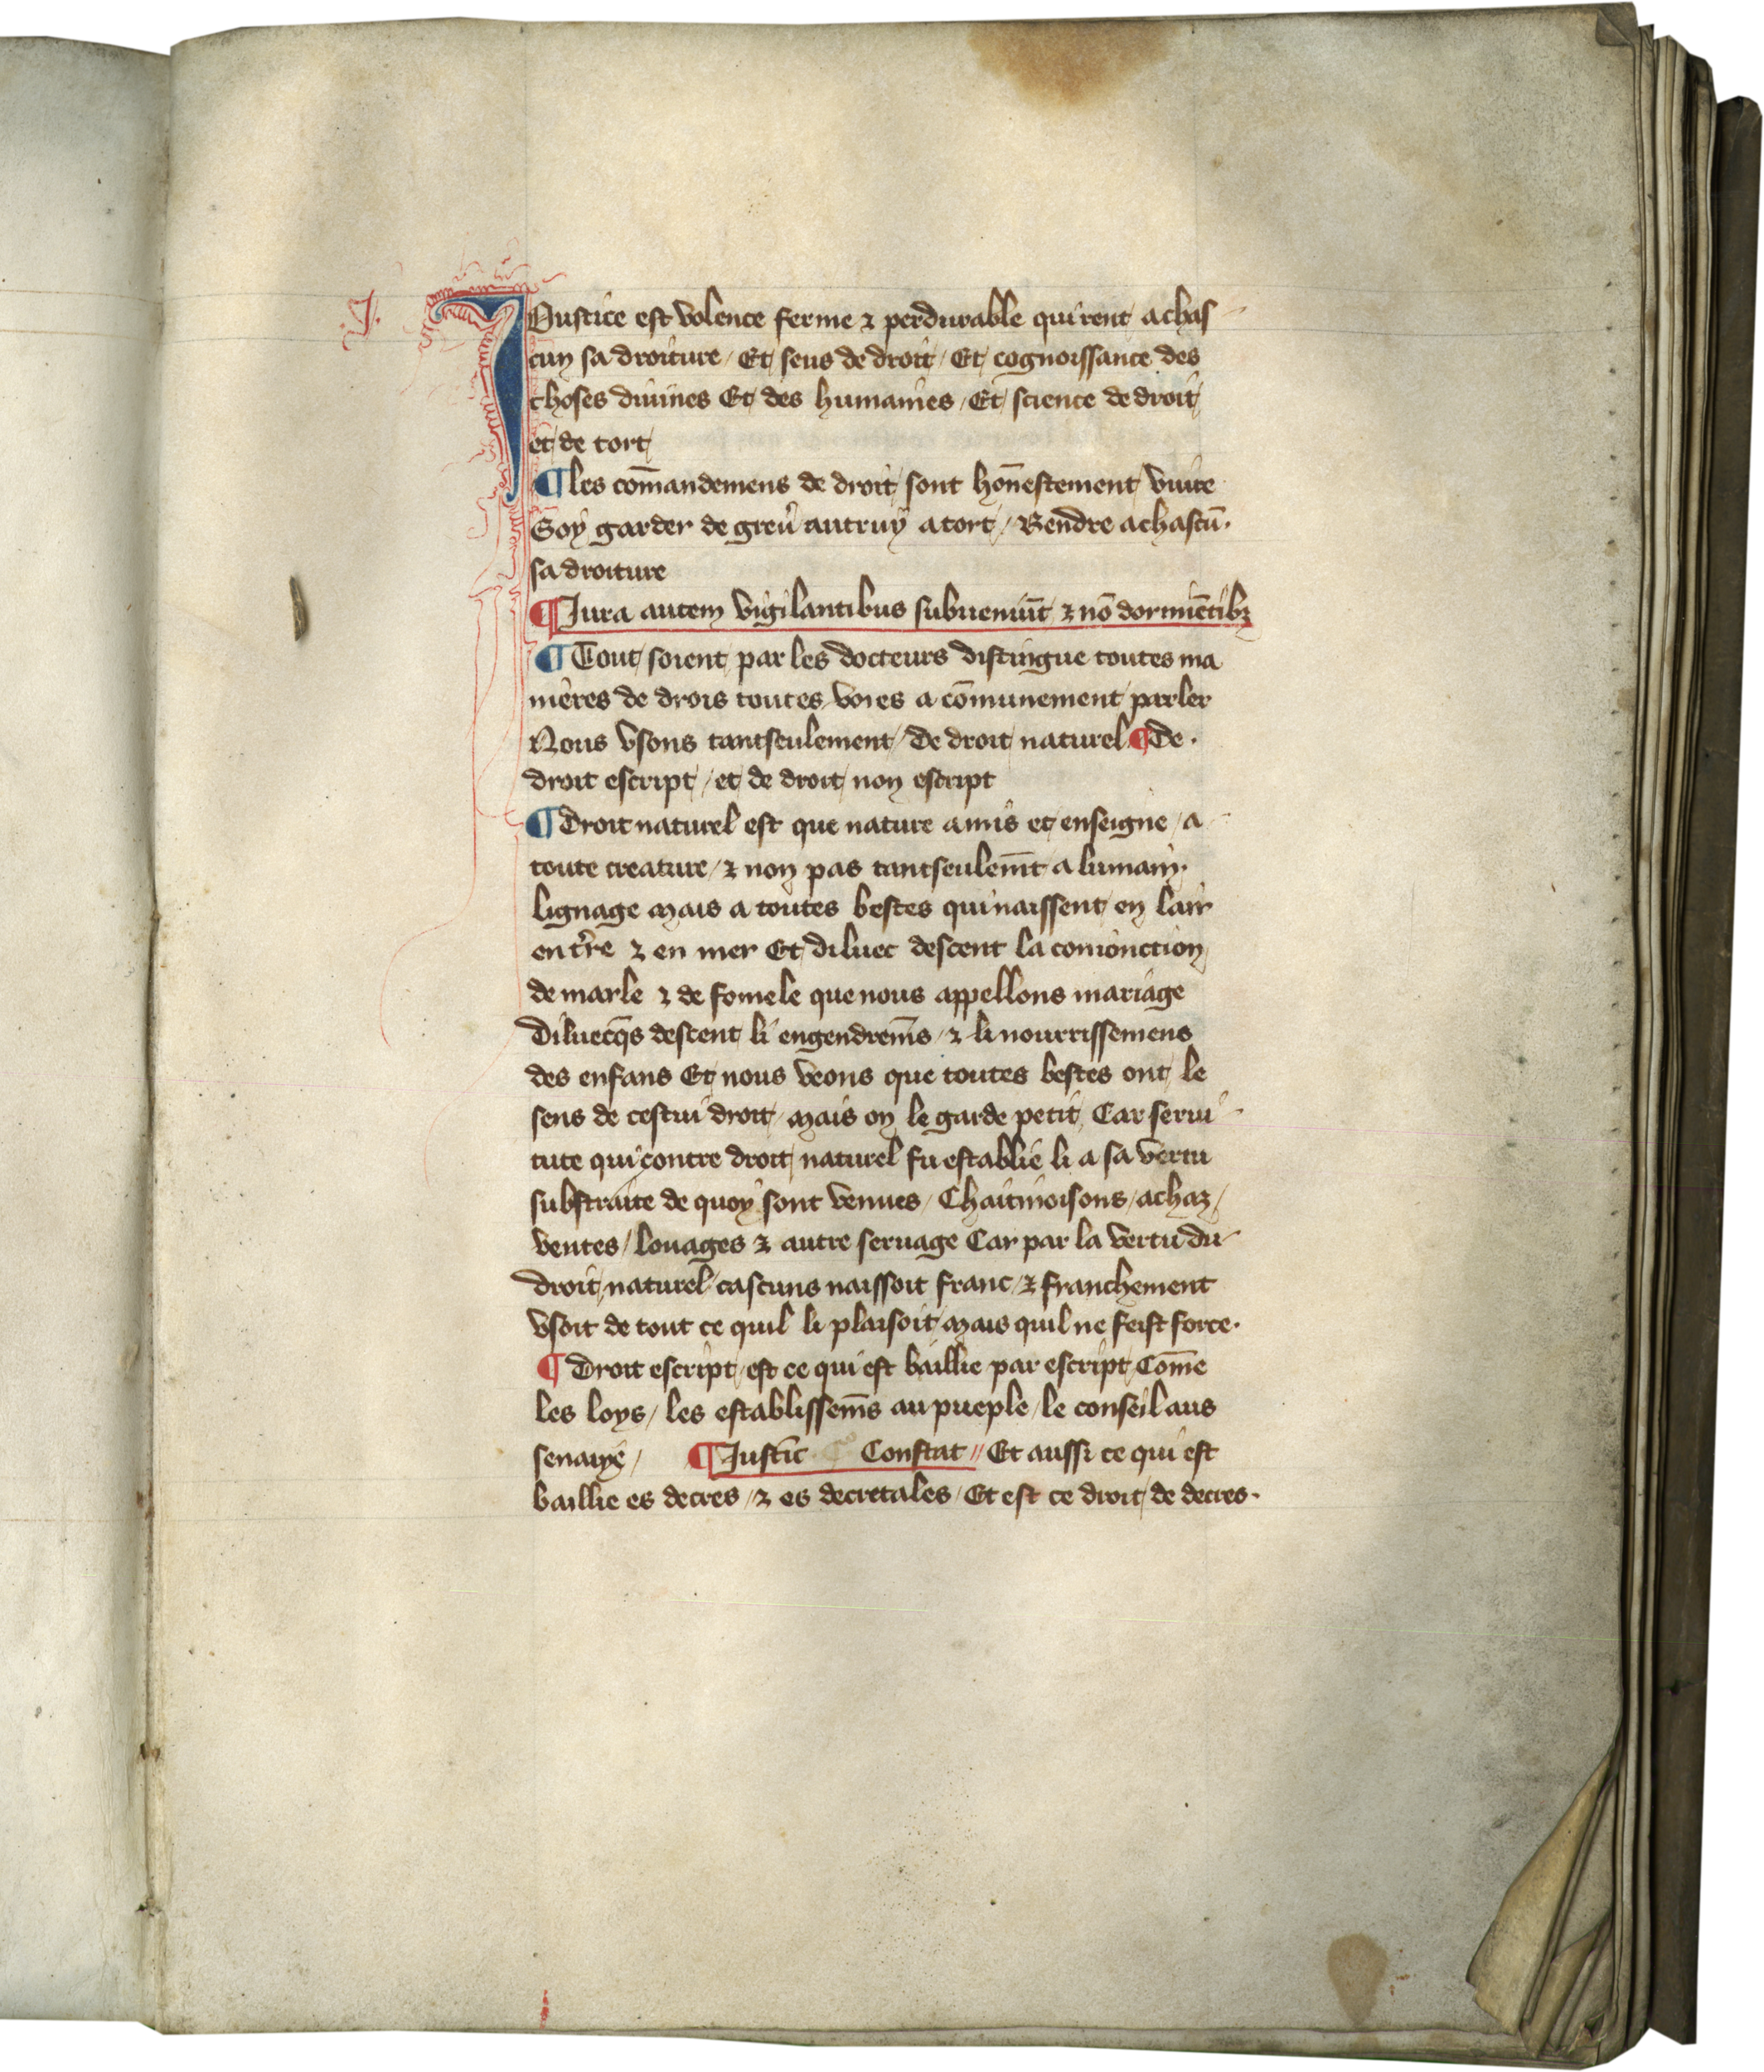 J.
JUustice est volence ferme ⁊ perdurable qui rent a chas
cun sa droiture / Et sens de droit / Et cognoissance des
choses diuines Et des humaines / Et science de droit
et de tort
¶ les cōmandemens de droit sont hōnestement viure
Soy garder de greu̾ autruy a tort / Rendre a chascū.
sa droiture
¶ Jura autem vigilantibus subueniūt ⁊ nō dormiētibꝫ
¶ Tout soient par les docteurs distingue toutes ma
nieres de drois toutes voies a cōmunement parler
Nous vsons tantseulement / De droit naturel ¶ De.
droit escript / et de droit non escript
¶ Droit naturel est que nature a mis et enseigne / a
toute creature / ⁊ non pas tantseulem̄t a lumain.
lignage mais a toutes bestes qui naissent en lair
en t̾re ⁊ en mer Et diluec descent la conionction
de marle ⁊ de fomele que nous appellons mariage
Diluecq̄s descent li engendrem̄s / ⁊ li nourrissemens
des enfans Et nous veons que toutes bestes ont le
sens de cestui droit / mais on le garde petit Car serui
tute qui contre droit naturel fu establie li a sa vertu
substraite de quoy sont venues / Chaitiuoisons / achaz /
ventes / louages ⁊ autre seruage Car par la vertu du
droit naturel / cascuns naissoit franc / ⁊ franchement
vsoit de tout ce quil li plaisoit mais quil ne feist force.
¶ Droit escript / est ce qui est baillie par escript Cōme
les loys / les establissem̄s au pueple / le conseil aus
/ ¶ Justic̄ Constat // Et aussi ce qui est
baillie es decres / ⁊ es decretales / Et est ce droit de decres.